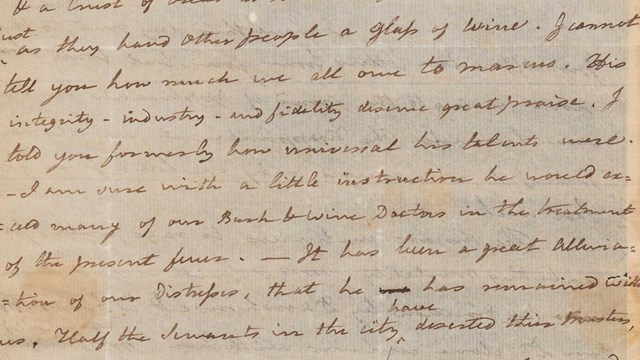 & a
just
as they hand other people a glass of wine. I cannot
tell you how much we all owe to Marcus. His
integrity - industry - and fidelity deserve great praise. I
told you formerly how universal his talents were.
- I am sure with a little instruction he would ex-
=ceed many of our Bark & wine Doctors in the treatment
of the present fever. — It has been a great Allevia-
=tion of our Distresses, that he has remained with
have
us. Half the Servants in the city deserted their masters,